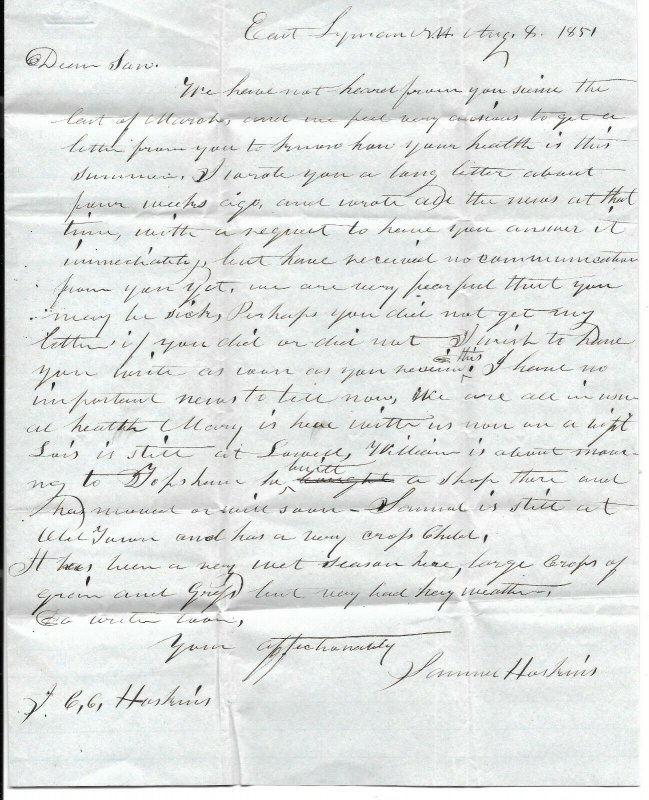 East Lyman N.H. Aug. 8. 1851
Dear Son.
We have not heard from you since the
last of March, and we feel very anxious to get a
letter from you to know how your health is this
summer. I wrote you a long letter about
four weeks ago, and wrote all the news at that
time, with a request to have you answer it
immediately, but have received no communication
from you yet. we are very fearful that you
may be sick, Perhaps you did not get my
letter if you did or did not I wish to have
you write as soon as you receive this. I have no
important news to tell now, We are all in usu
al health Mary is here with us now on a visit
Lois is still at Lowell, William is about mov-
ing to Topsham he built bought a shop there and
has moved or will soon - Samuel is still at
Old Town and has a very cross Child,
It has been a very wet season here, large Crops of
grain and Grass but very bad hay weather.
Do write soon,
Your affectionately
Samuel Hoskins
J. C, C, Hoskins